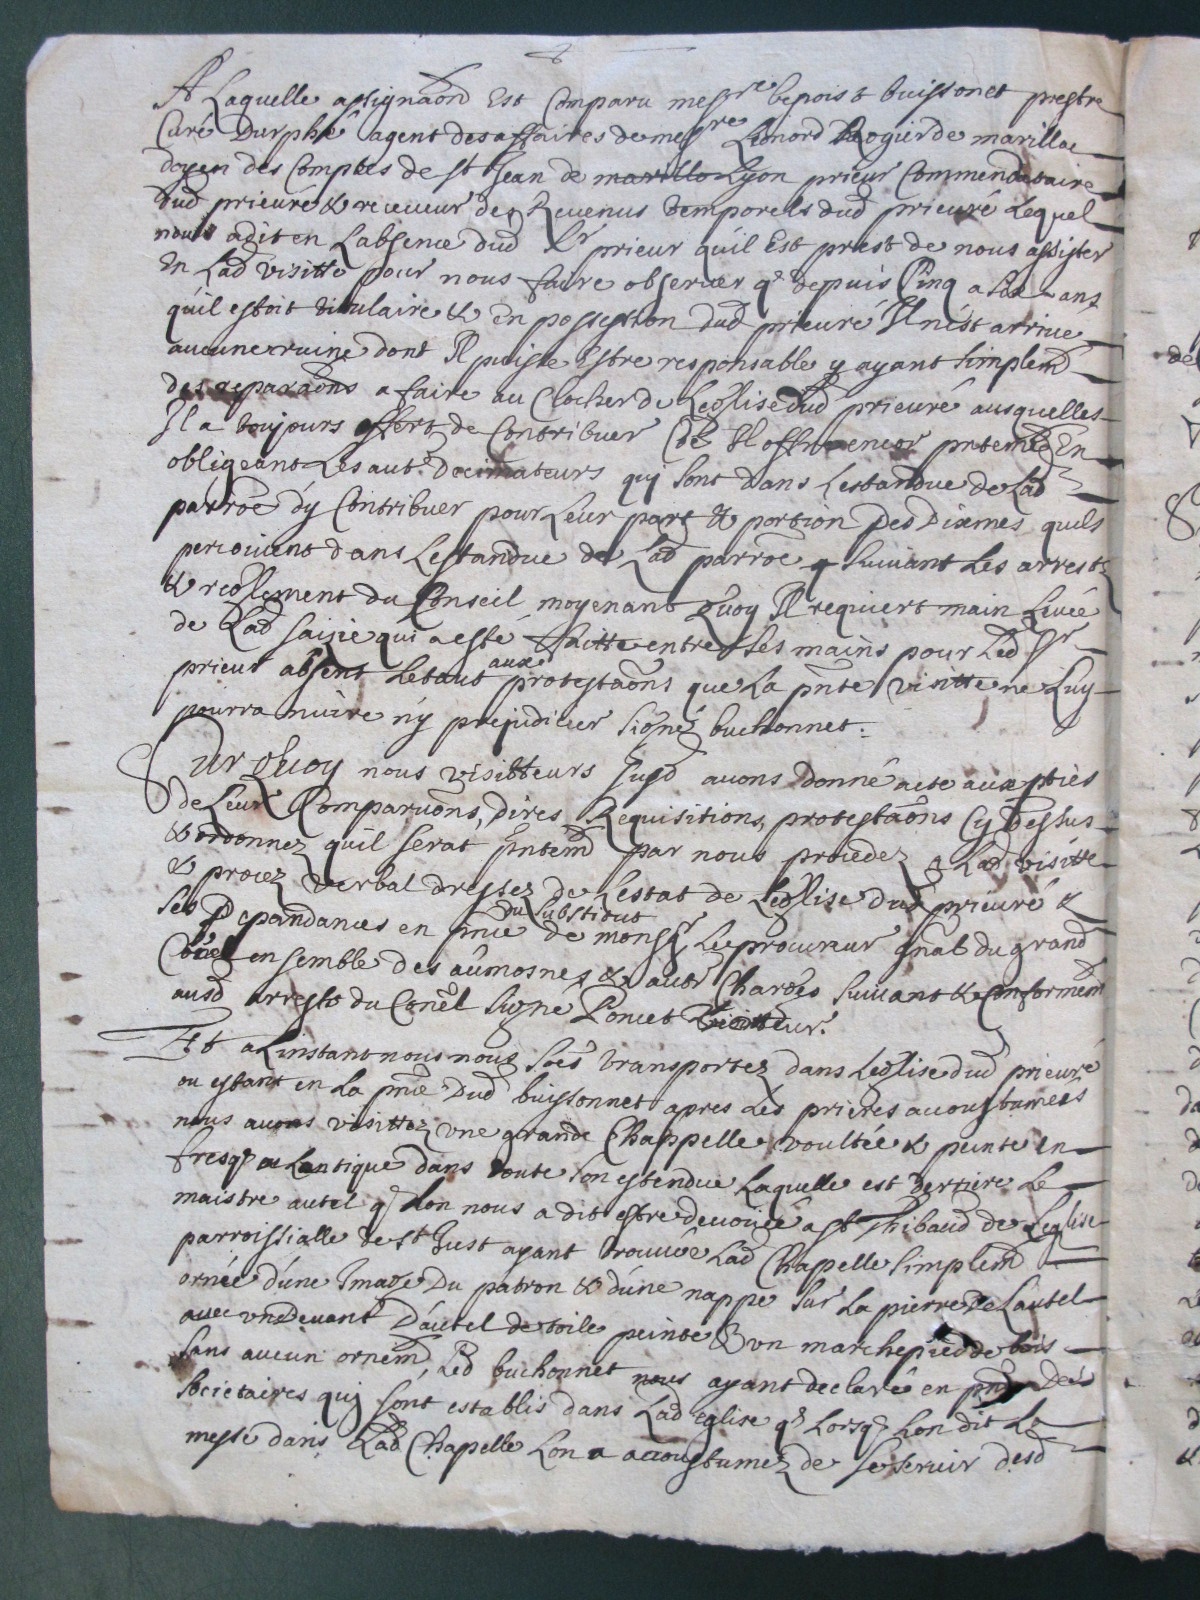 A Laquelle assignaon Est Comparu messre benoist buissonet prestre
Curé Durphé agent des affaires de messre Leonord dogier de marillac
doyen des Comptes de st Jean de Lyon prieur Commendataire
dud prieuré & receueur des Reuenus temporels dud prieuré Lequel
nous a dit en Labsence dud Sr prieur quil Est prest de nous assister
En Lad visitte pour nous faire obseruer q depuis Cinq a six ans
quil estoit titulaire & En possestion dud prieuré Il nest arriue
aucune ruine dont Il puisse Estre responsable y ayant simplemt
des reparaons a faire au Clocher de Leglise dud prieuré ausquelles
Il a toujours offert de Contribuer Et Il offre encor En
obligeant Les autrs decimateurs quj sont dans Lestandue de Lad
parroe dy Contribuer pour Leur part & portion des Dixmes quils
percoiuent dans Lestandue de Lad parroe suiuant Les arrests
& reglement du Conseil moyenant Quoy Il requiert main Leuée
de Lad saisie qui a esté faitte entre ses mains pour Led Sr
prieur absent Le tout aux protestaons que La pnte visitte ne Luy
pourra nuire ny prejudicier signéz buchonnet.
Sur Quoy nous visitteurs susd auons donné acte aux pties
de Leur Comparuons, dires, Requisitions, protestaons Cy Dessus
& ordonnez quil serat Intemt par nous procedez a Lad visitte
& procez verbal dressez de Lestat de Leglise dud prieuré &
ses Dependances en pnce du substitut de monsr Le procureur gnal du grand
Conel ensemble des aumosnes & autr Charges suiuant & Conformemt
ausd arrests du Conel signé Poncet visitteur.
Et a Linstant nous nous soes transportez dans Leglise dud prieuré
ou estant en La pnce Dud buissonnet apres Les prieres accoustumées
nous auons visittez vne grande Chappelle voultée & peinte en
fresq a Lantique dans toute son estendue Laquelle est derriere Le
maistre autel q Lon nous a dit estre deuouée a st Thibaud de Leglise
parroissialle de st Just ayant trouuée Lad Chapelle simplemt
ornée d'une Image Du patron & d'une nappe sur La pierre de Lautel
auec vn deuant Dautel de toile peinte & vn marchepied de bois
sans aucun ornemt, Led buchonnet nous ayant declaré en pnce Des
societaires quj sont establis dans Lad eglise q Lorsq Lon dit La
messe dans Lad Chapelle Lon a accoustumez de se seruir desd